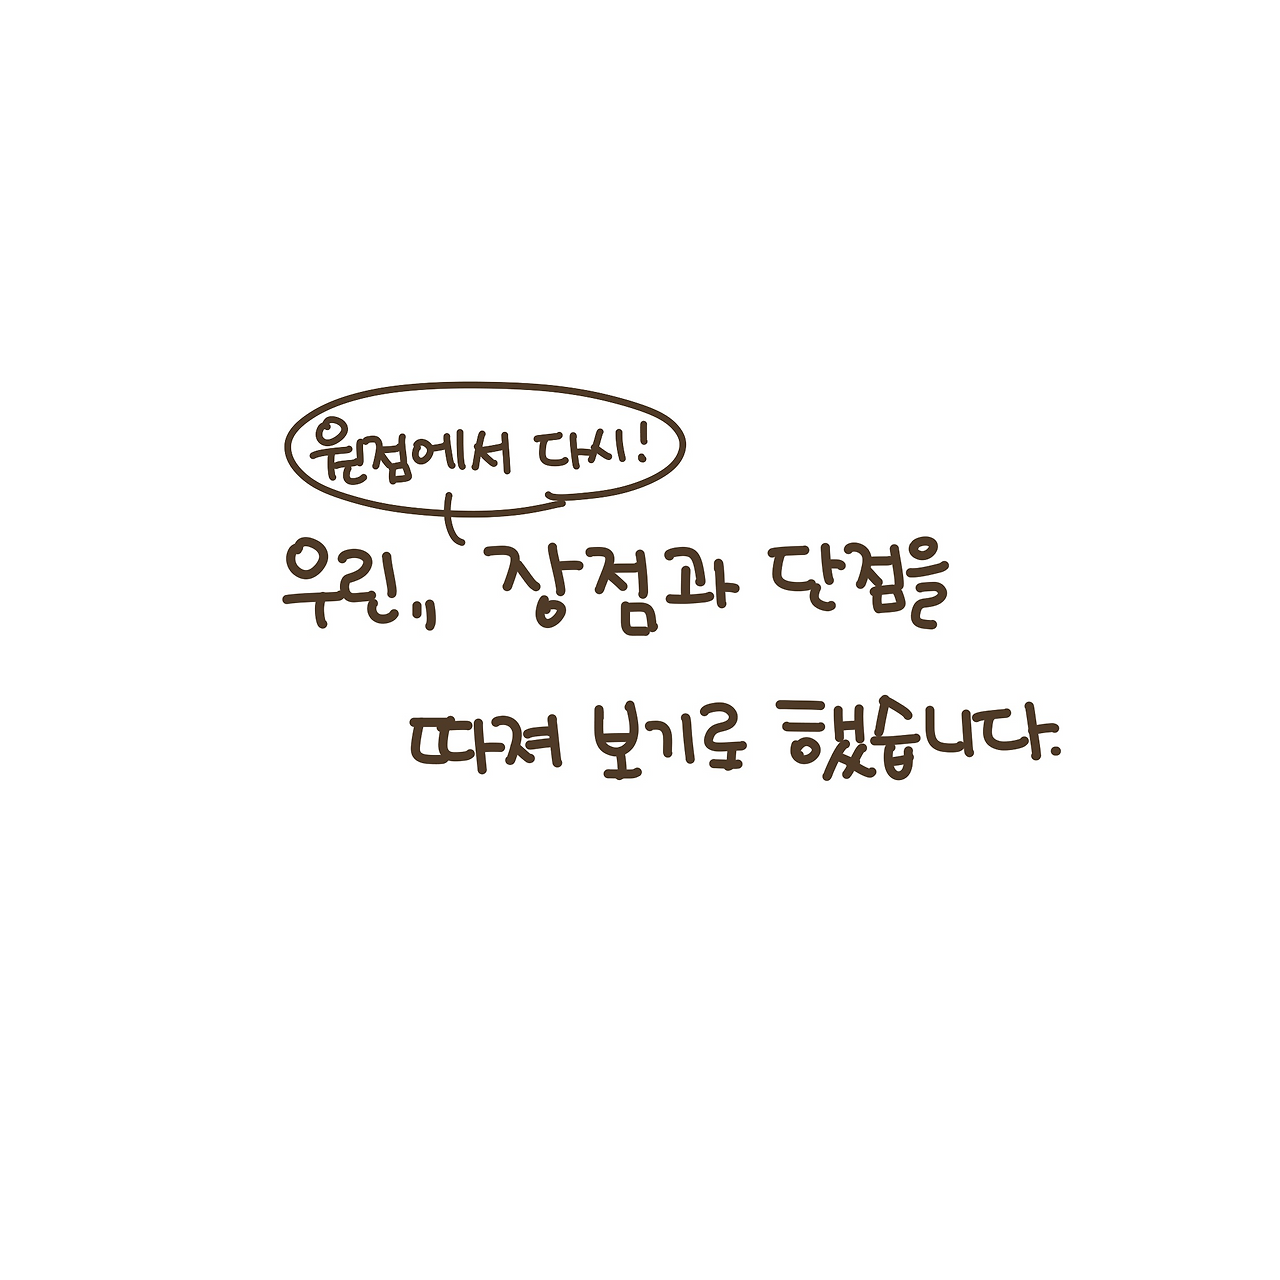 원점에서 다시!
우린,, 장점과 단점을
따져 보기로 했습니다.